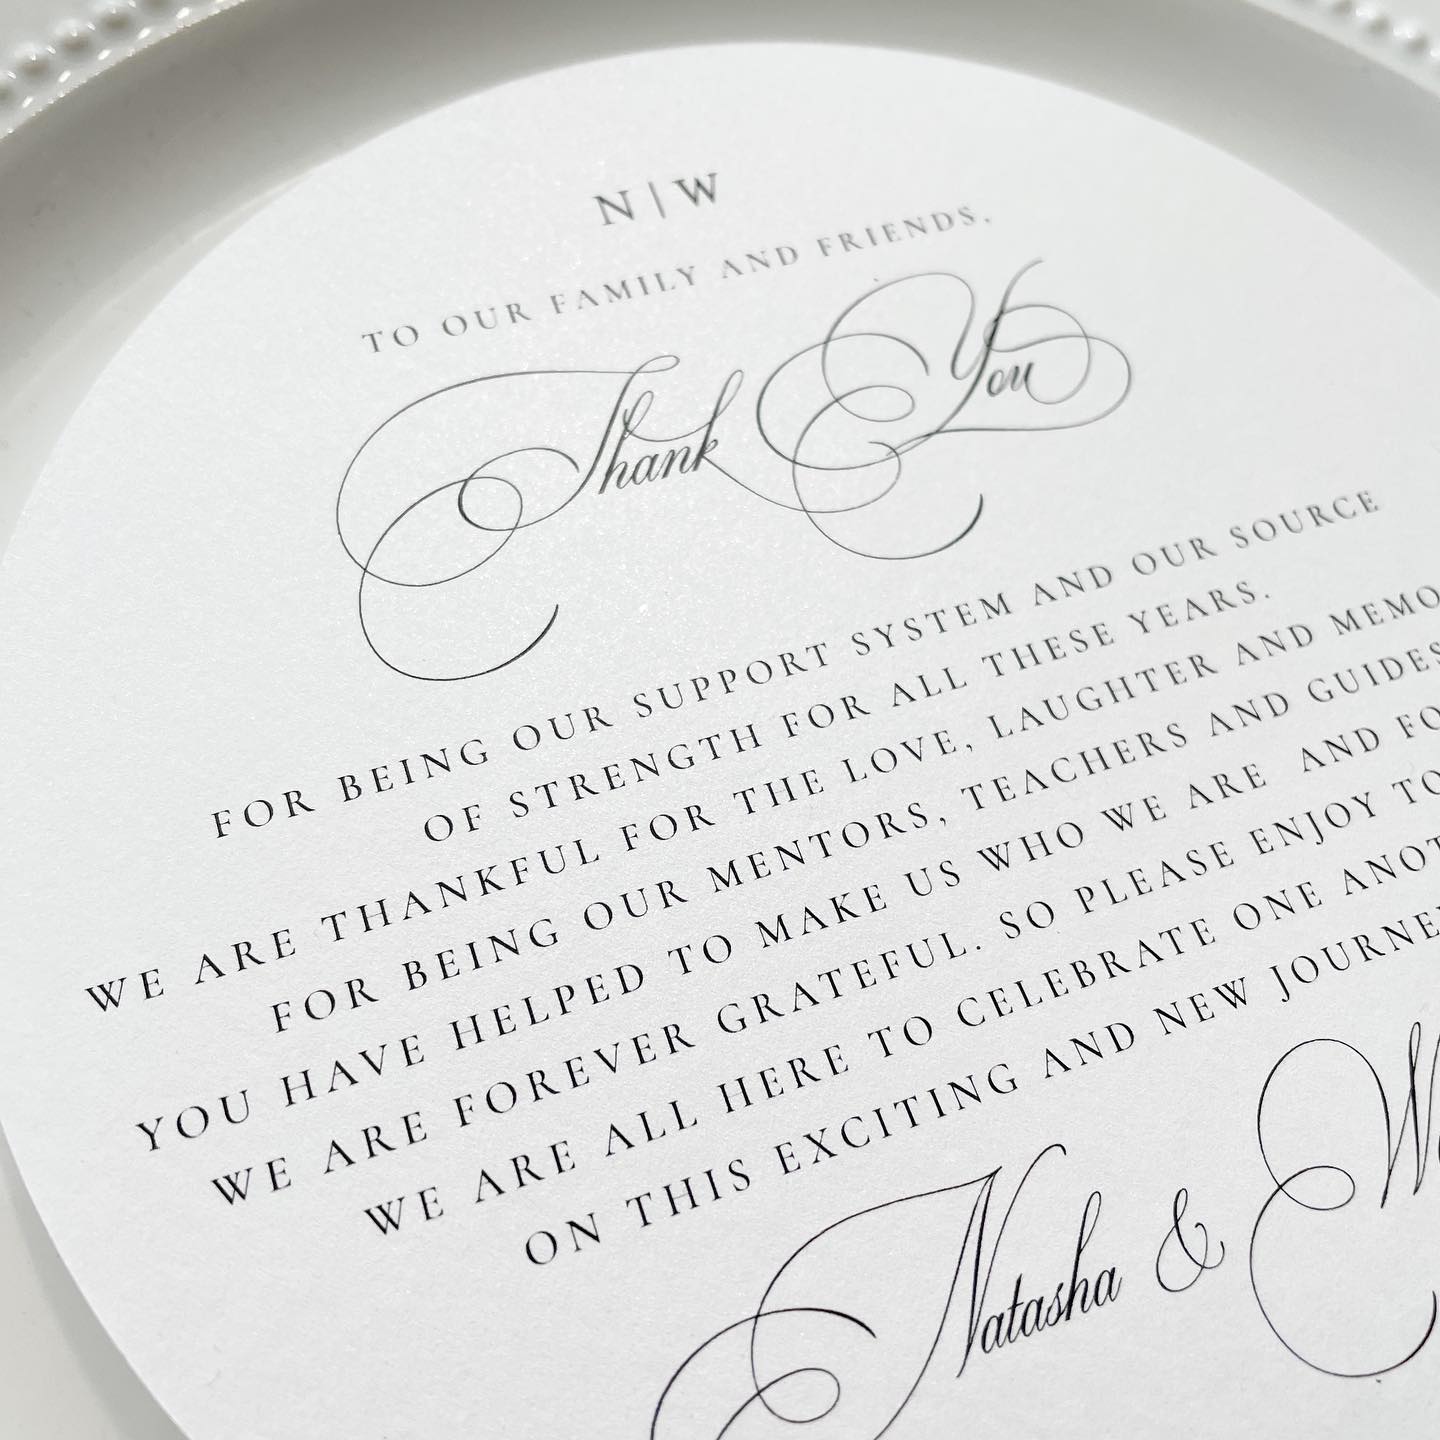 N | W
TO OUR FAMILY AND FRIENDS,
Thank You
FOR BEING OUR SUPPORT SYSTEM AND OUR SOURCE
OF STRENGTH FOR ALL THESE YEARS.
WE ARE THANKFUL FOR THE LOVE, LAUGHTER AND
FOR BEING OUR MENTORS, TEACHERS AND GUIDES
YOU HAVE HELPED TO MAKE US WHO WE ARE AND
WE ARE FOREVER GRATEFUL. SO PLEASE ENJOY
WE ARE ALL HERE TO CELEBRATE ONE
ON THIS EXCITING AND NEW
Natasha &